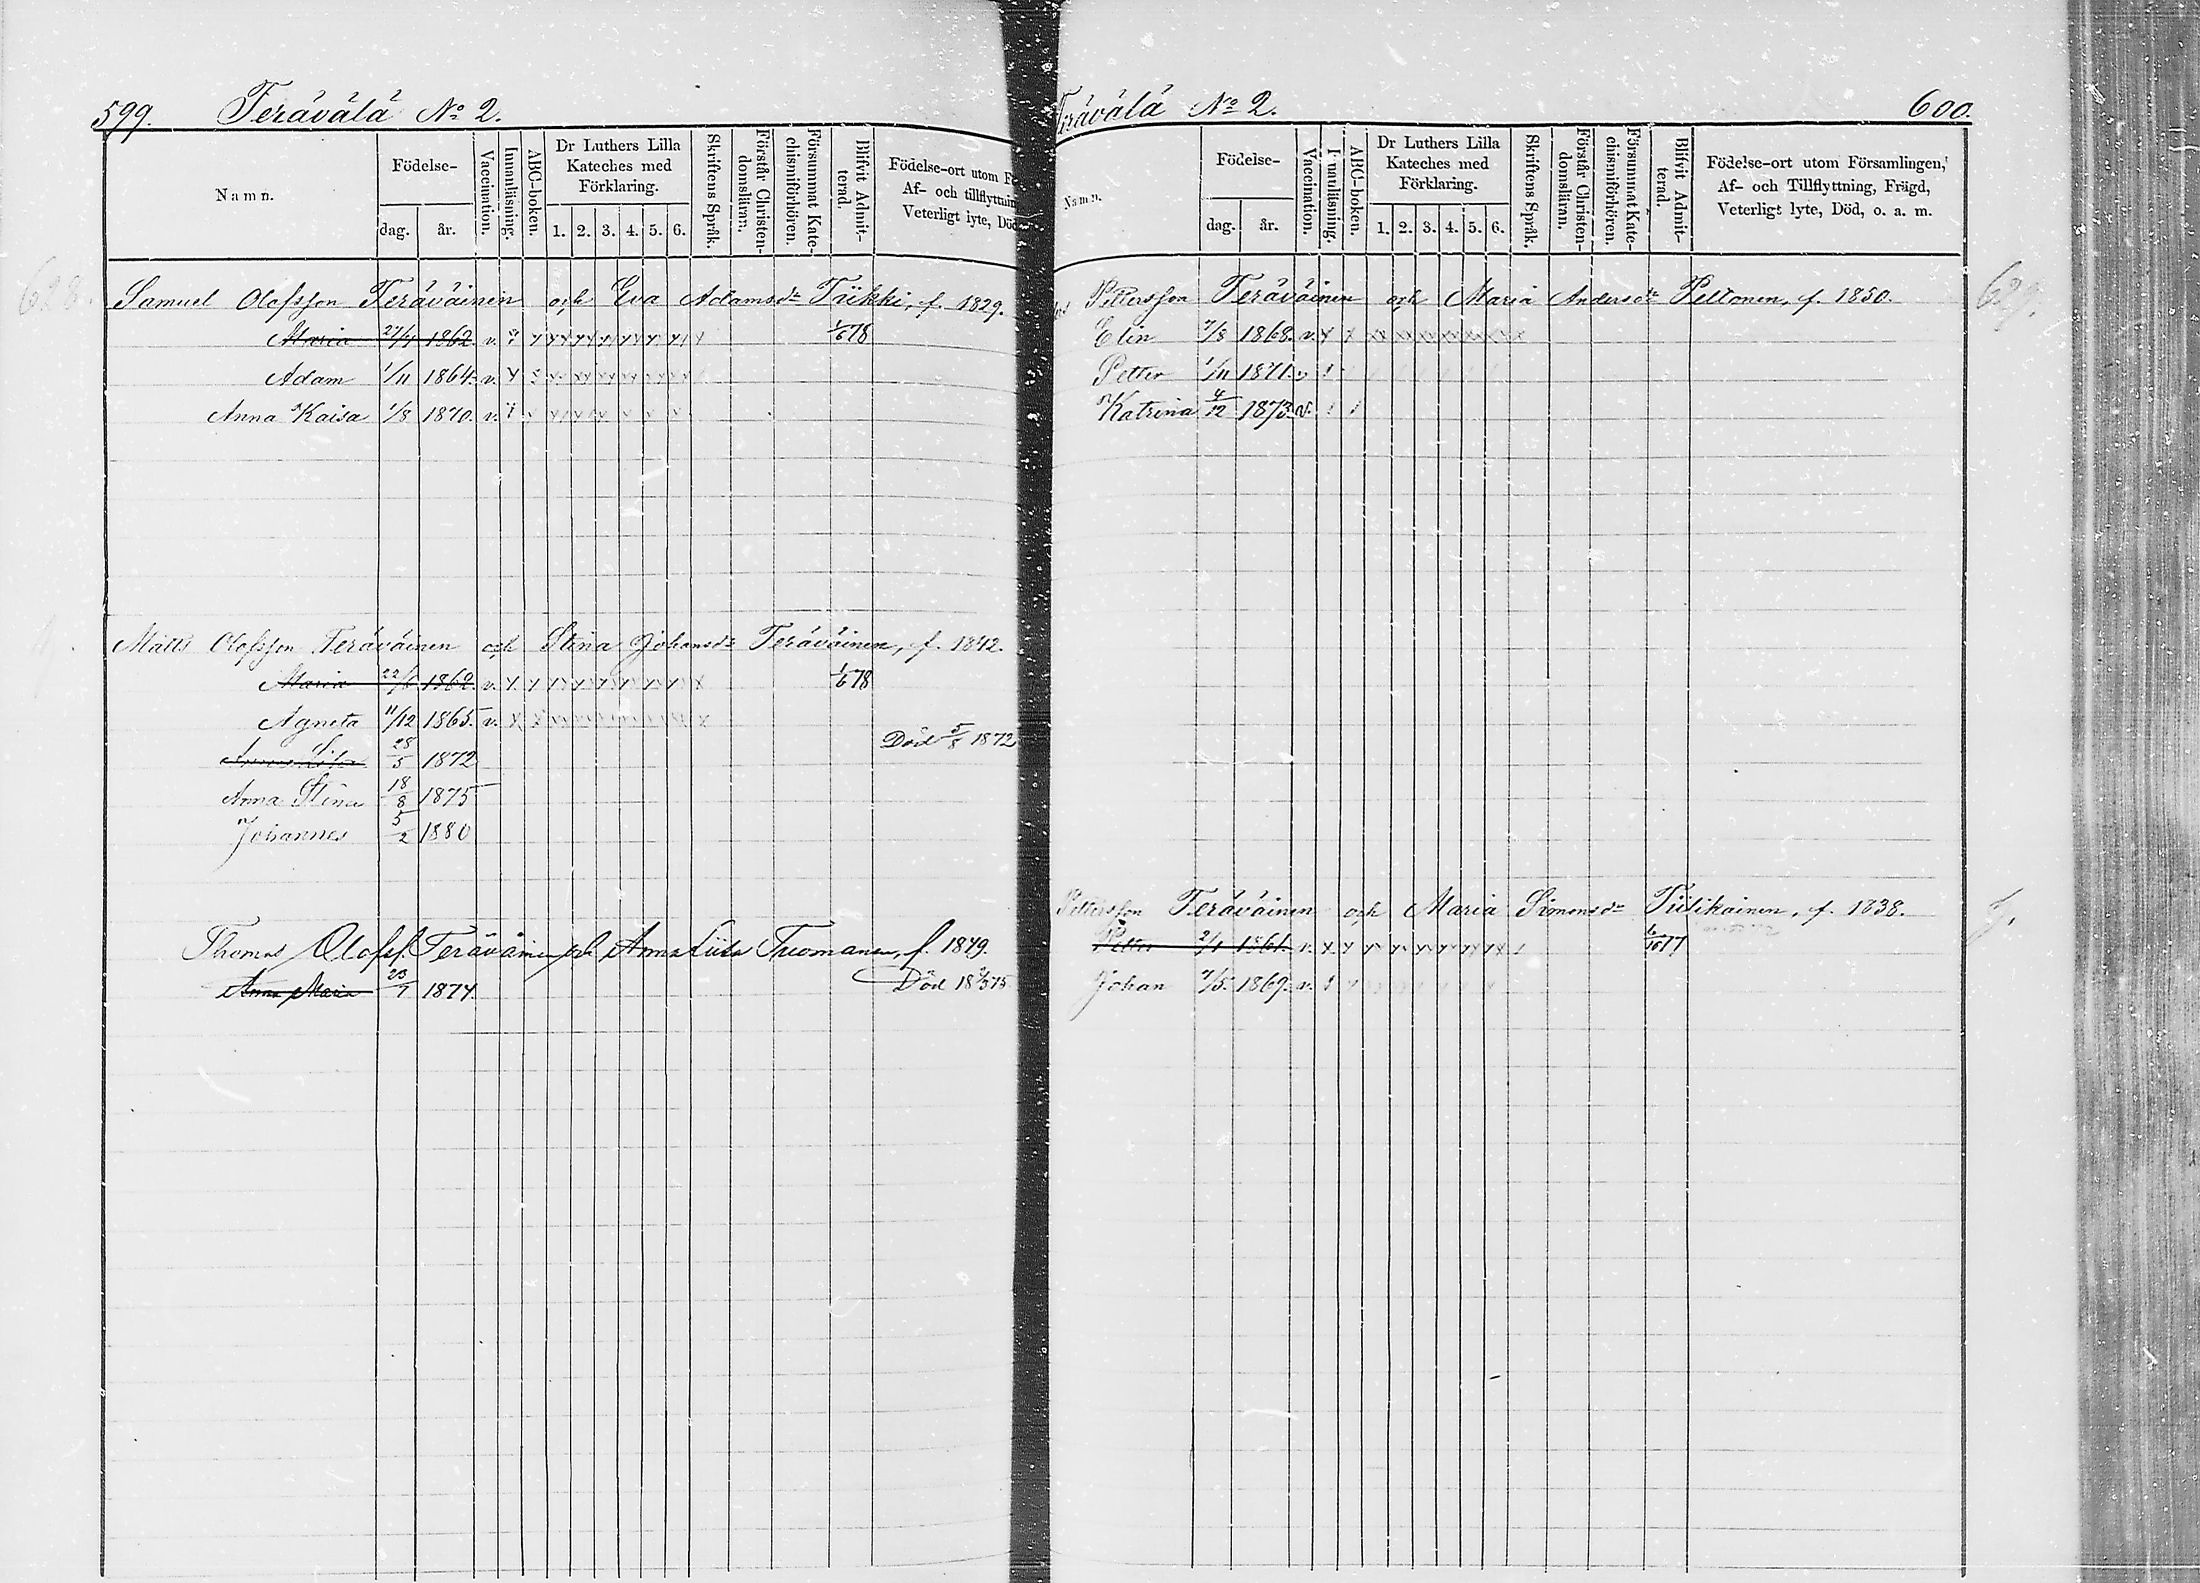 599. Terävälä No 2.
Namn.
Födelse-
dag. år.
Vaccination.
Innanläsning.
ABC-boken.
Dr Luthers Lilla Kateches med Förklaring.
1. 2. 3. 4. 5. 6.
Skriftens Språk.
Förstår Christen-domsläran.
Försummat Kate-chismiförhören.
Blifvit Admit-terad.
Födelse-ort utom
Af- och tillflyttnin
Veterligt lyte, Död
628.
Samuel Olofsson Teräväinen och Eva Adamsdr Tiikki, f. 1829.
Maria 27/4 1862. v. 1/6 78
Adam 1/11 1864. v.
Anna Kaisa 1/8 1870. v.
Matts Olofsson Teräväinen och Stina Johansdr Teräväinen, f. 1842.
Maria 1862. v. 1/6 78
Agneta 11/12 1865. v.
28/5 1872 Död 5/8 1872
Anna Stina 18/8 1875
Johannes 5/2 1880
Thomas Olofsf. Teräväinen och Anna Liisa Tuomanen, f. 1849.
Anna Maria 23/7 1874 Död
rävälä No 2. 600.
Namn.
Födelse-
dag. år.
Vaccination.
I nanläsning.
ABC-boken.
Dr Luthers Lilla Kateches med Förklaring.
1. 2. 3. 4. 5. 6.
Skriftens Språk.
Förstår Christen-domsläran.
Försummat Kate-chismiförhören.
Blifvit Admit-terad.
Födelse-ort utom Församlingen,
Af- och Tillflyttning, Frägd,
Veterligt lyte, Död, o. a. m.
629.
Pettersson Teräväinen och Maria Andersdr Peltonen, f. 1850.
Elin 7/8 1868. v.
Petter 1/11 1871. v
Katrina 4/12 1873. v.
Pettersson Teräväinen och Maria Simonsdr Tiilikainen, f. 1838.
Petter 2/1 1861. v. 6/10 77
Johan 7/5 1869. v.